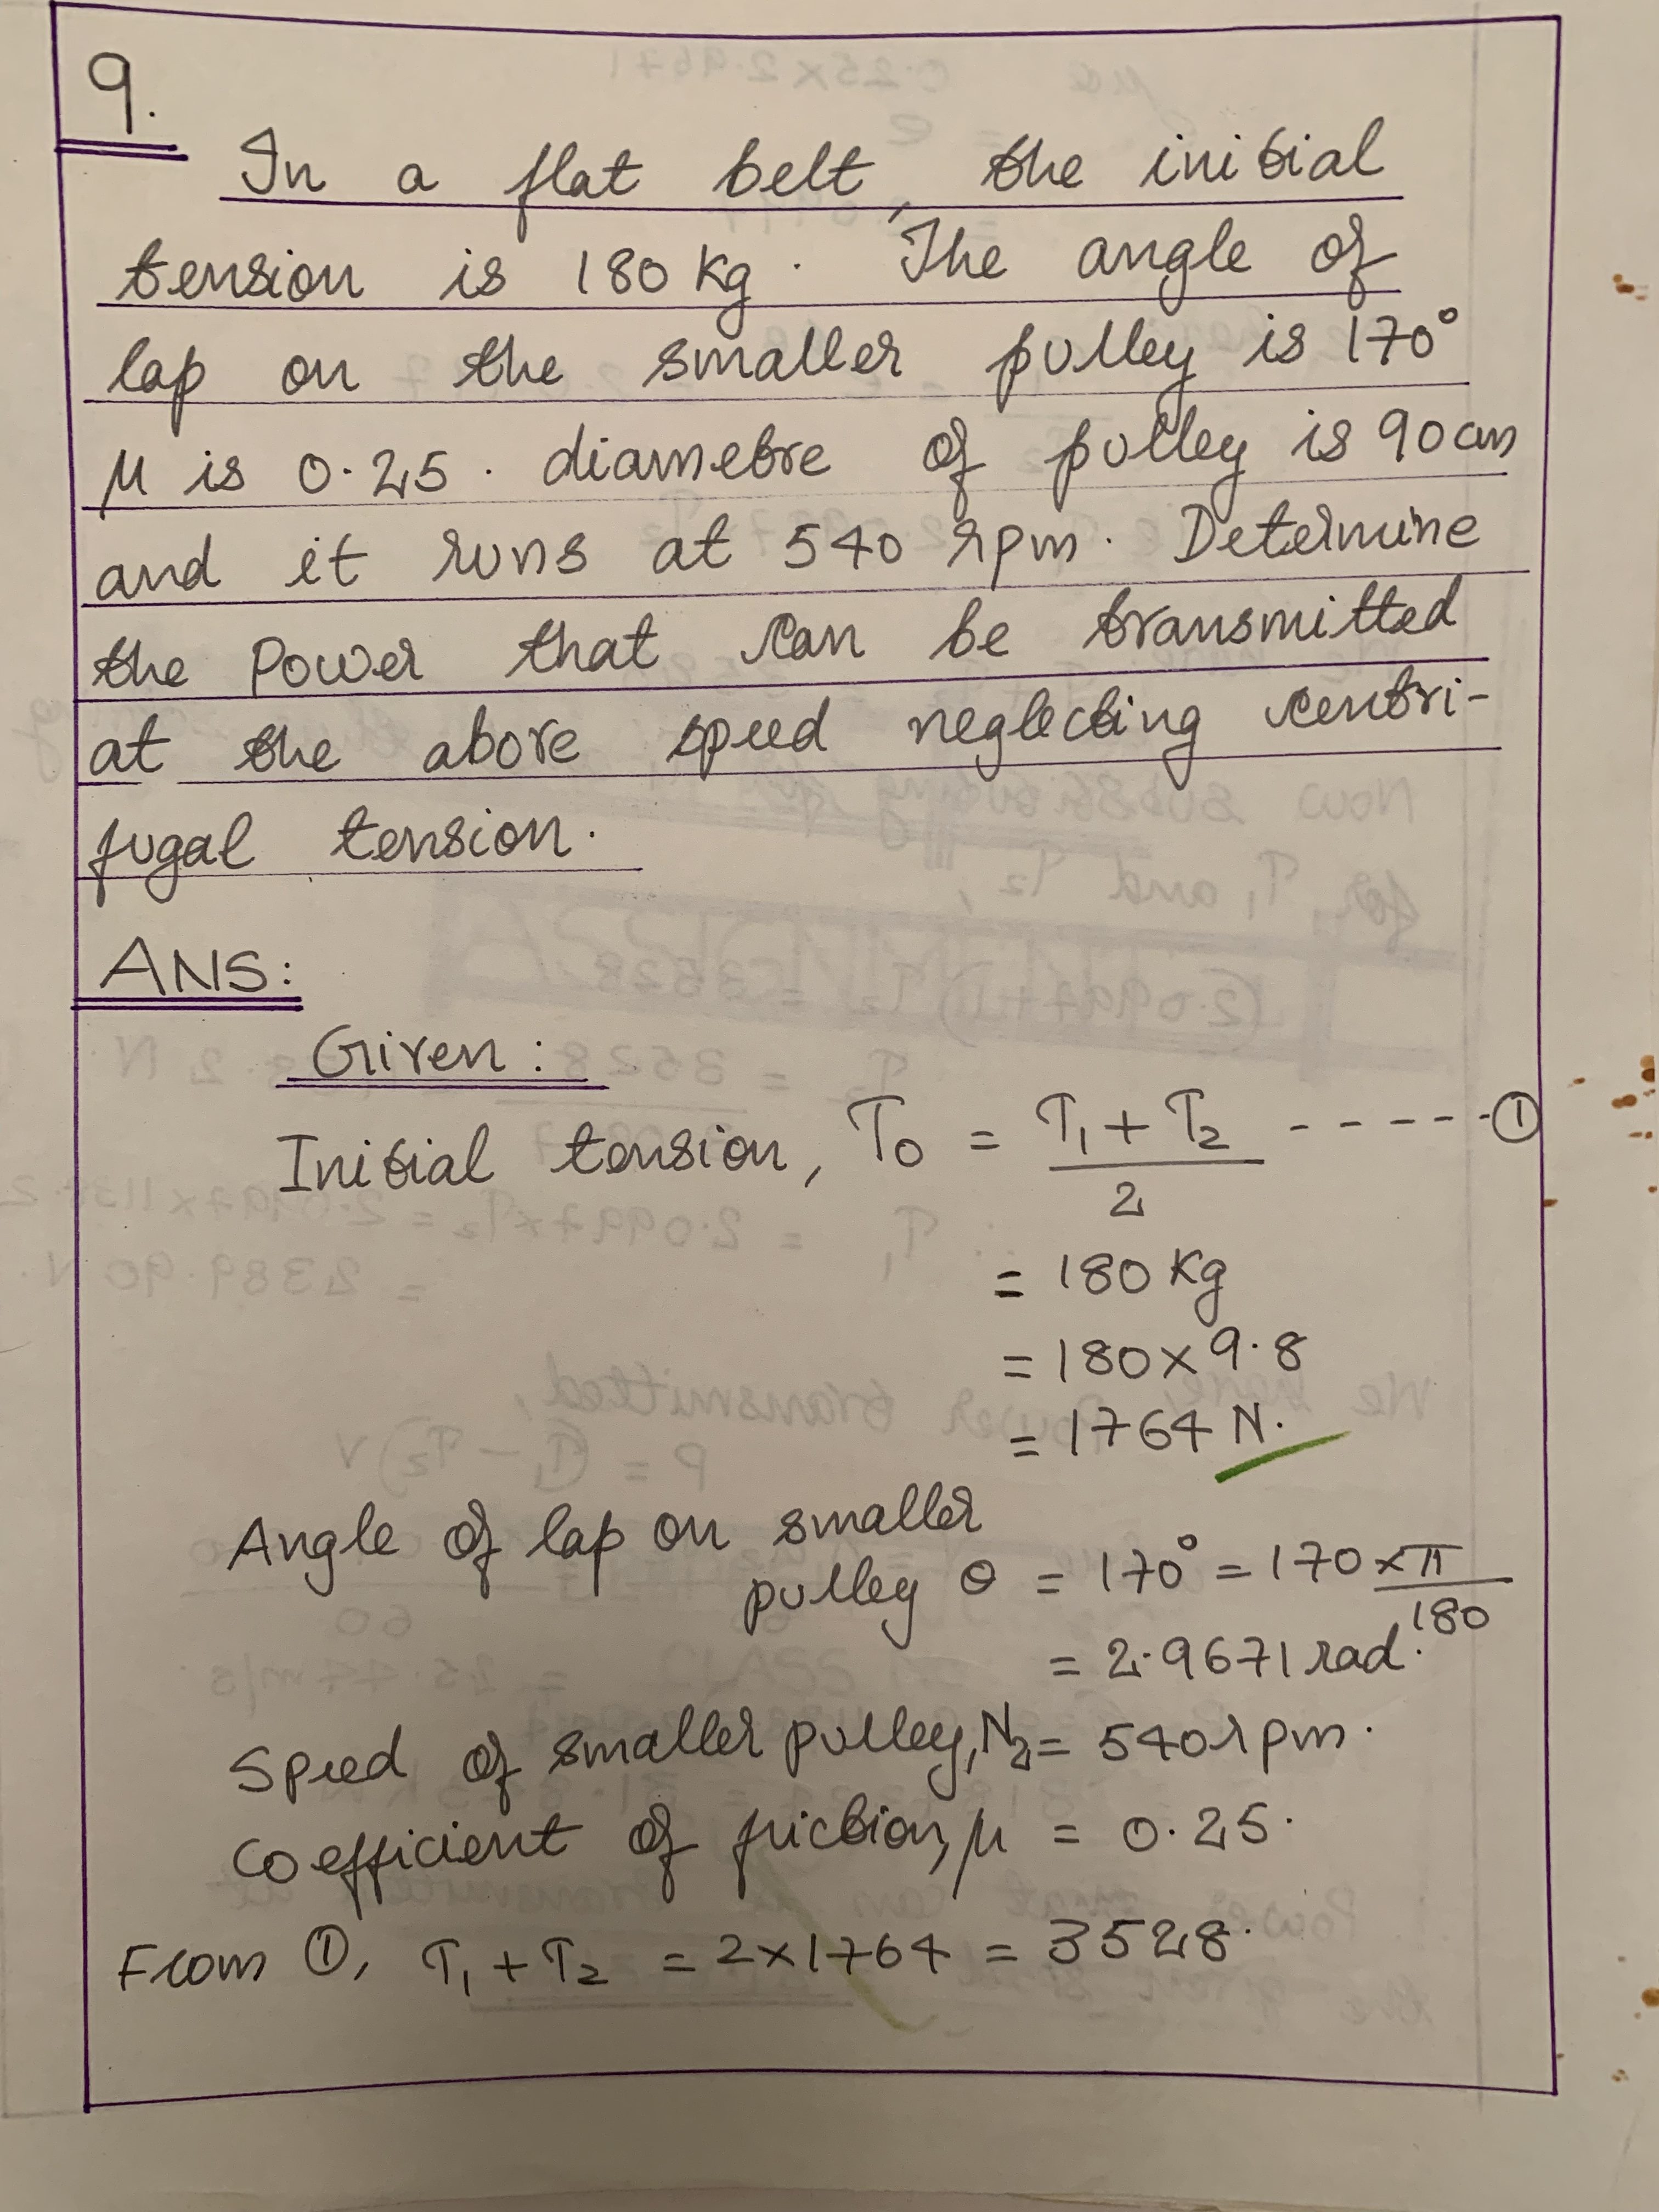 9.
In a flat belt, the initial
tension is 180 kg. The angle of
lap on the smaller pulley is 170°
μ is 0.25. diametre of pulley is 90cm
and it runs at 540 rpm. Determine
the Power that can be transmitted
at the above speed neglecting centri-
fugal tension.
ANS:
Given:
Initial tension, T₀ = T₁ + T₂ / 2 -----①
= 180 Kg
= 180 × 9.8
= 1764 N.
Angle of lap on smaller
pulley θ = 170° = 170 × π / 180
= 2.9671 rad.
Speed of smaller pulley, N₂ = 540 rpm.
Coefficient of friction, μ = 0.25.
From ①, T₁ + T₂ = 2×1764 = 3528.